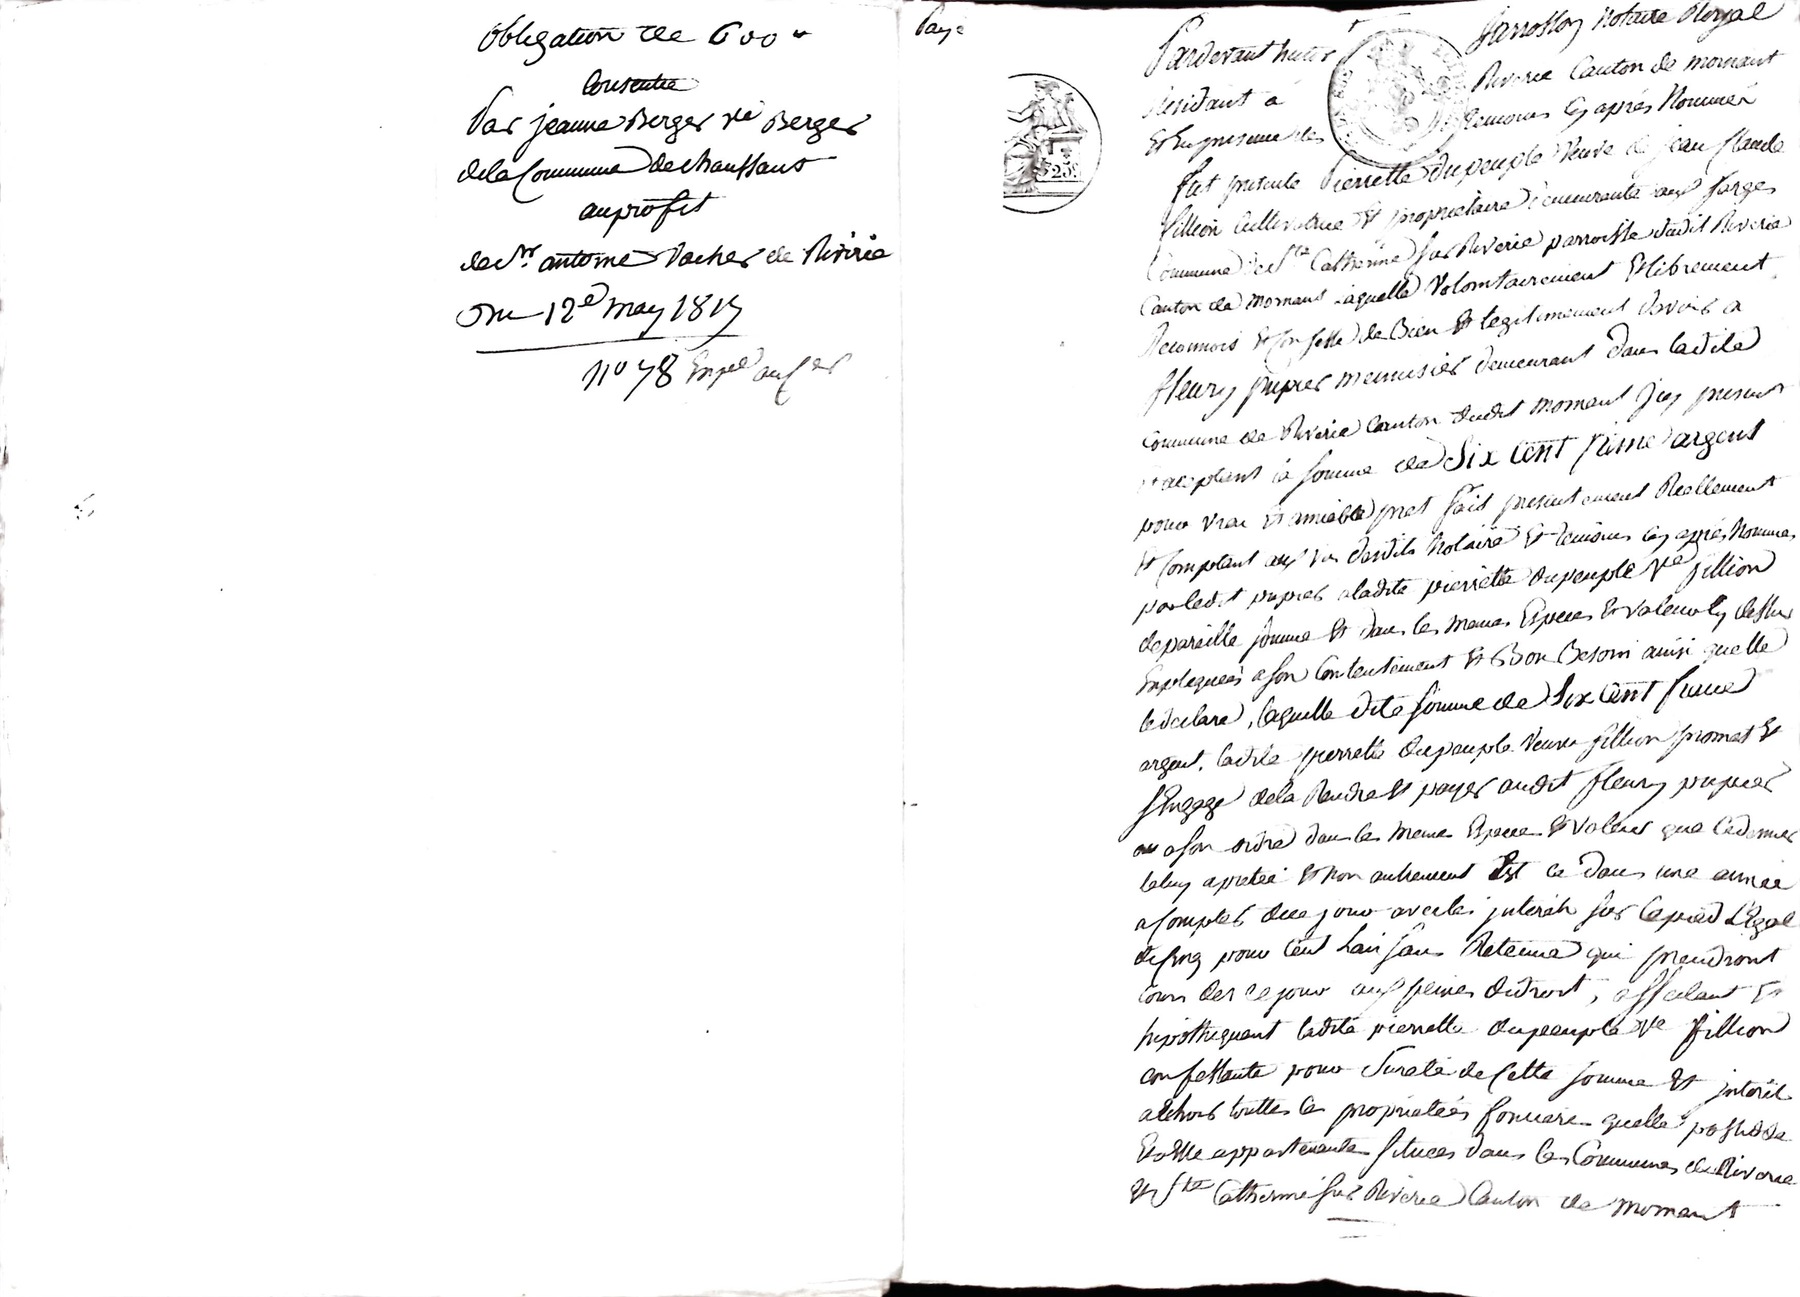 Obligation de 600 #
Consentie
Par jeanne Berger ve Berger
dela Commune de chaussans
au profit
de Sr. antoine Vacher de Riverie
Du 12e may 1817
no 78 Expé
Payé
Pardevant
notaire Royal
Residant a
Riverie Canton de mornant
Et En presence des
temoins cy après Nommés
fut presente Pierrette dupeuple Veuve de jean Claude
fillion Cultivatrice Et proprietaire demeurante aux farges
Commune de Ste Catherine sur Riverie parroisse dudit Riverie
Canton de mornant laquelle Volontairement Et librement
Reconnois Et Confesse de Bien Et legitimement devoir a
fleury pupier menuisier demeurant dans ladite
Commune de Riverie Canton dudit mornant Icy present
Et acceptant la somme de Six Cent francs argent
pour vrai Et amiable pret fait presentement Reellement
Et Comptant aux vu desdits Notaire Et temoins cy après Nommés
par ledit pupier a ladite pierrette dupeuple Ve fillion
de pareille somme Et dans les memes Especes Et valeur cy dessus
Expliquées a son Contentement Et Bon Besoin ainsi quelle
le declare, laquelle dite somme de Six Cent francs
argent. ladite pierrette dupeuple Veuve fillion promet Et
s'Engage dela Rendre Et payer audit fleury pupier
ou a son ordre dans les memes Especes Et Valeur que Cedernier
la luy a pretée Et non autrement Et ce dans une année
a Compter de ce jour avec les jnterêts sur le pied L'Egal
de Cinq pour Cent L'an sans Retenue qui prendront
Cours des ce jour aux peines de droit, affectant Et
hipothequant ladite pierrette dupeuple Ve fillion
Confessante pour Sureté de Cette somme Et jnterêts
toutes les proprietées foncieres quelle possede
Et a Elle appartenantes situées dans les Communes de Riverie
Et Ste Catherine sur Riverie Canton de Mornant